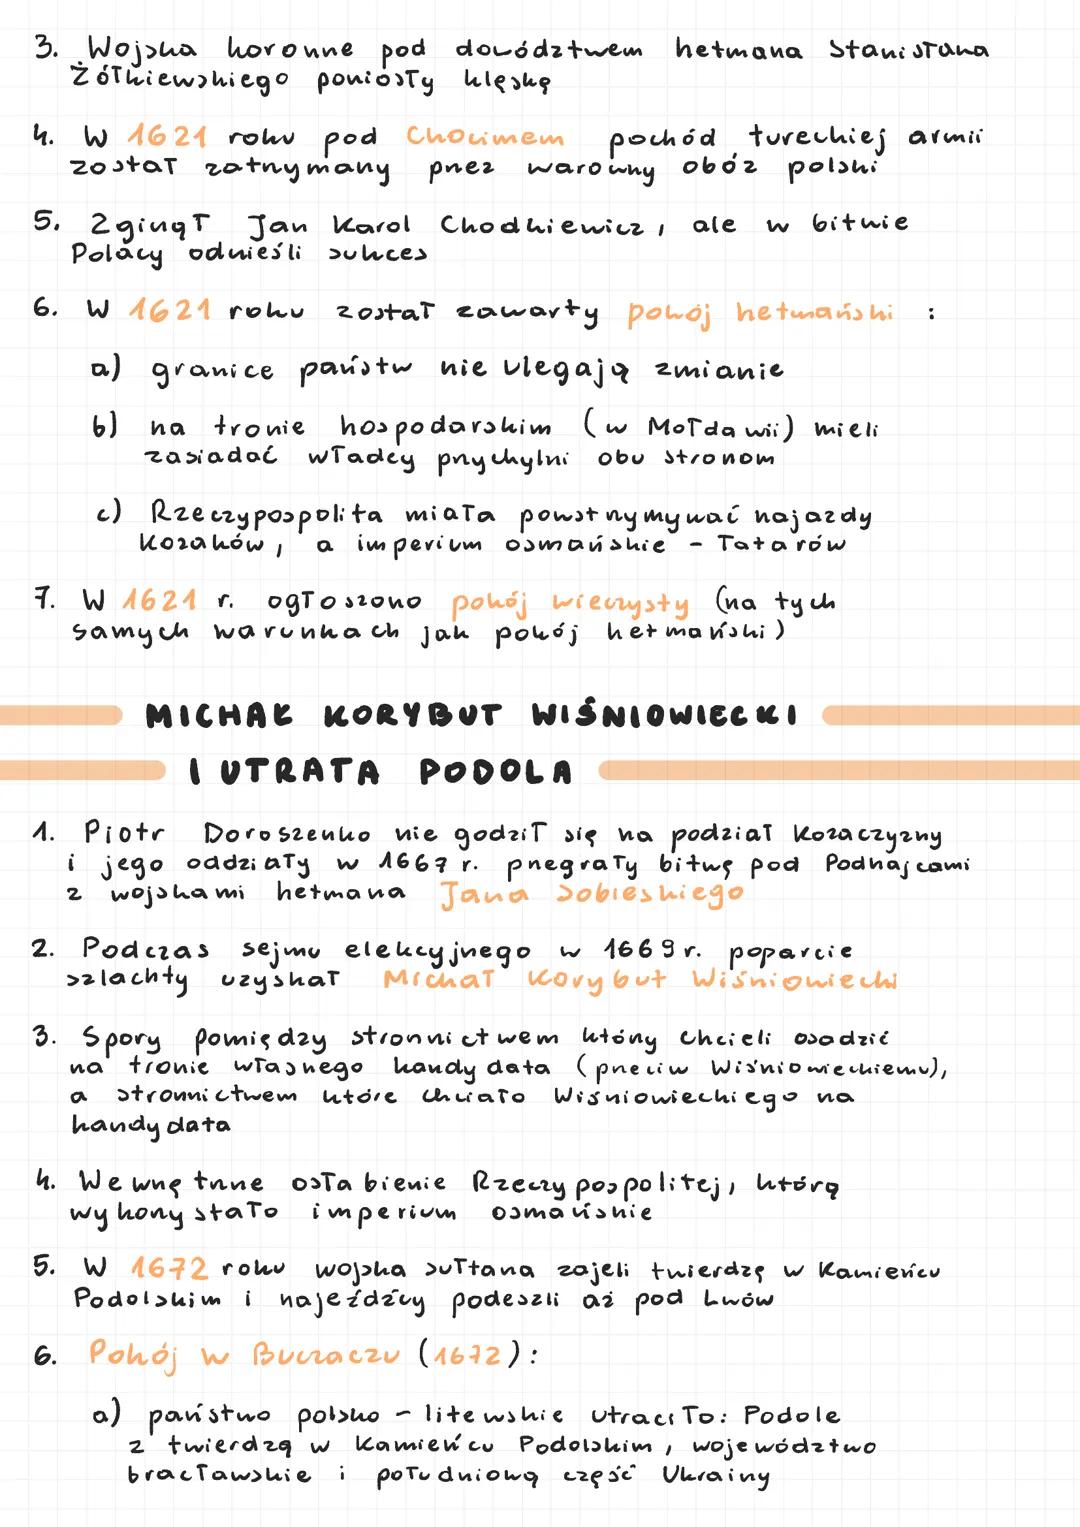 3. Wojska koronne pod dowództwem hetmana Stanisława
Żółkiewskiego poniosły klęskę
4. W 1621 roku pod Chocimem pochód tureckiej armii
został zatrzymany przez warowny obóz polski
5. Zginął Jan Karol Chodkiewicz, ale w bitwie
Polacy odnieśli sukces
6. W 1621 roku został zawarty pokój hetmański :
a) granice państw nie ulegają zmianie
b) na tronie hospodarskim (w Mołdawii) mieli
zasiadać władcy przychylni obu stronom
c) Rzeczypospolita miała powstrzymywać najazdy
Kozaków, a imperium osmańskie - Tatarów
7. W 1621 r. ogłoszono pokój wieczysty (na tych
samych warunkach jak pokój hetmański)
MICHAŁ KORYBUT WIŚNIOWIECKI
I UTRATA PODOLA
1. Piotr Doroszenko nie godził się na podział Kozaczyzny
i jego oddziały w 1667 r. przegrały bitwę pod Podhajcami
z wojskami hetmana Jana Sobieskiego
2. Podczas sejmu elekcyjnego w 1669 r. poparcie
szlachty uzyskał Michał Korybut Wiśniowiecki
3. Spory pomiędzy stronnictwem który chcieli osadzić
na tronie własnego kandydata (przeciw Wiśniowieckiemu),
a stronnictwem które chciało Wiśniowieckiego na
kandydata
4. Wewnętrzne osłabienie Rzeczypospolitej, którą
wykorzystało imperium osmańskie
5. W 1672 roku wojska sułtana zajeli twierdzę w Kamieńcu
Podolskim i najeźdźcy podeszli aż pod Lwów
6. Pokój w Buczaczu (1672):
a) państwo polsko - litewskie utraciło: Podole
z twierdzą w Kamieńcu Podolskim, województwo
bracławskie i południową część Ukrainy